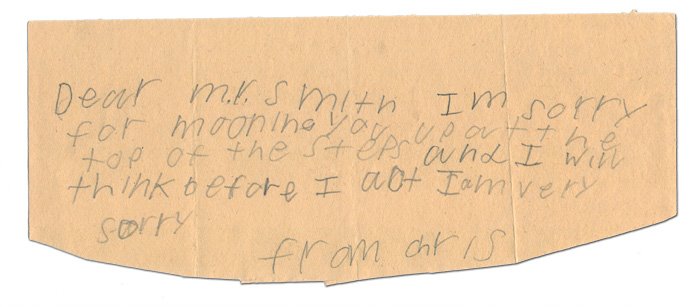 Dear m.r. smith I m sorry
for mooning you up at the
top of the steps and I will
think before I act I am very
sorry
from chris